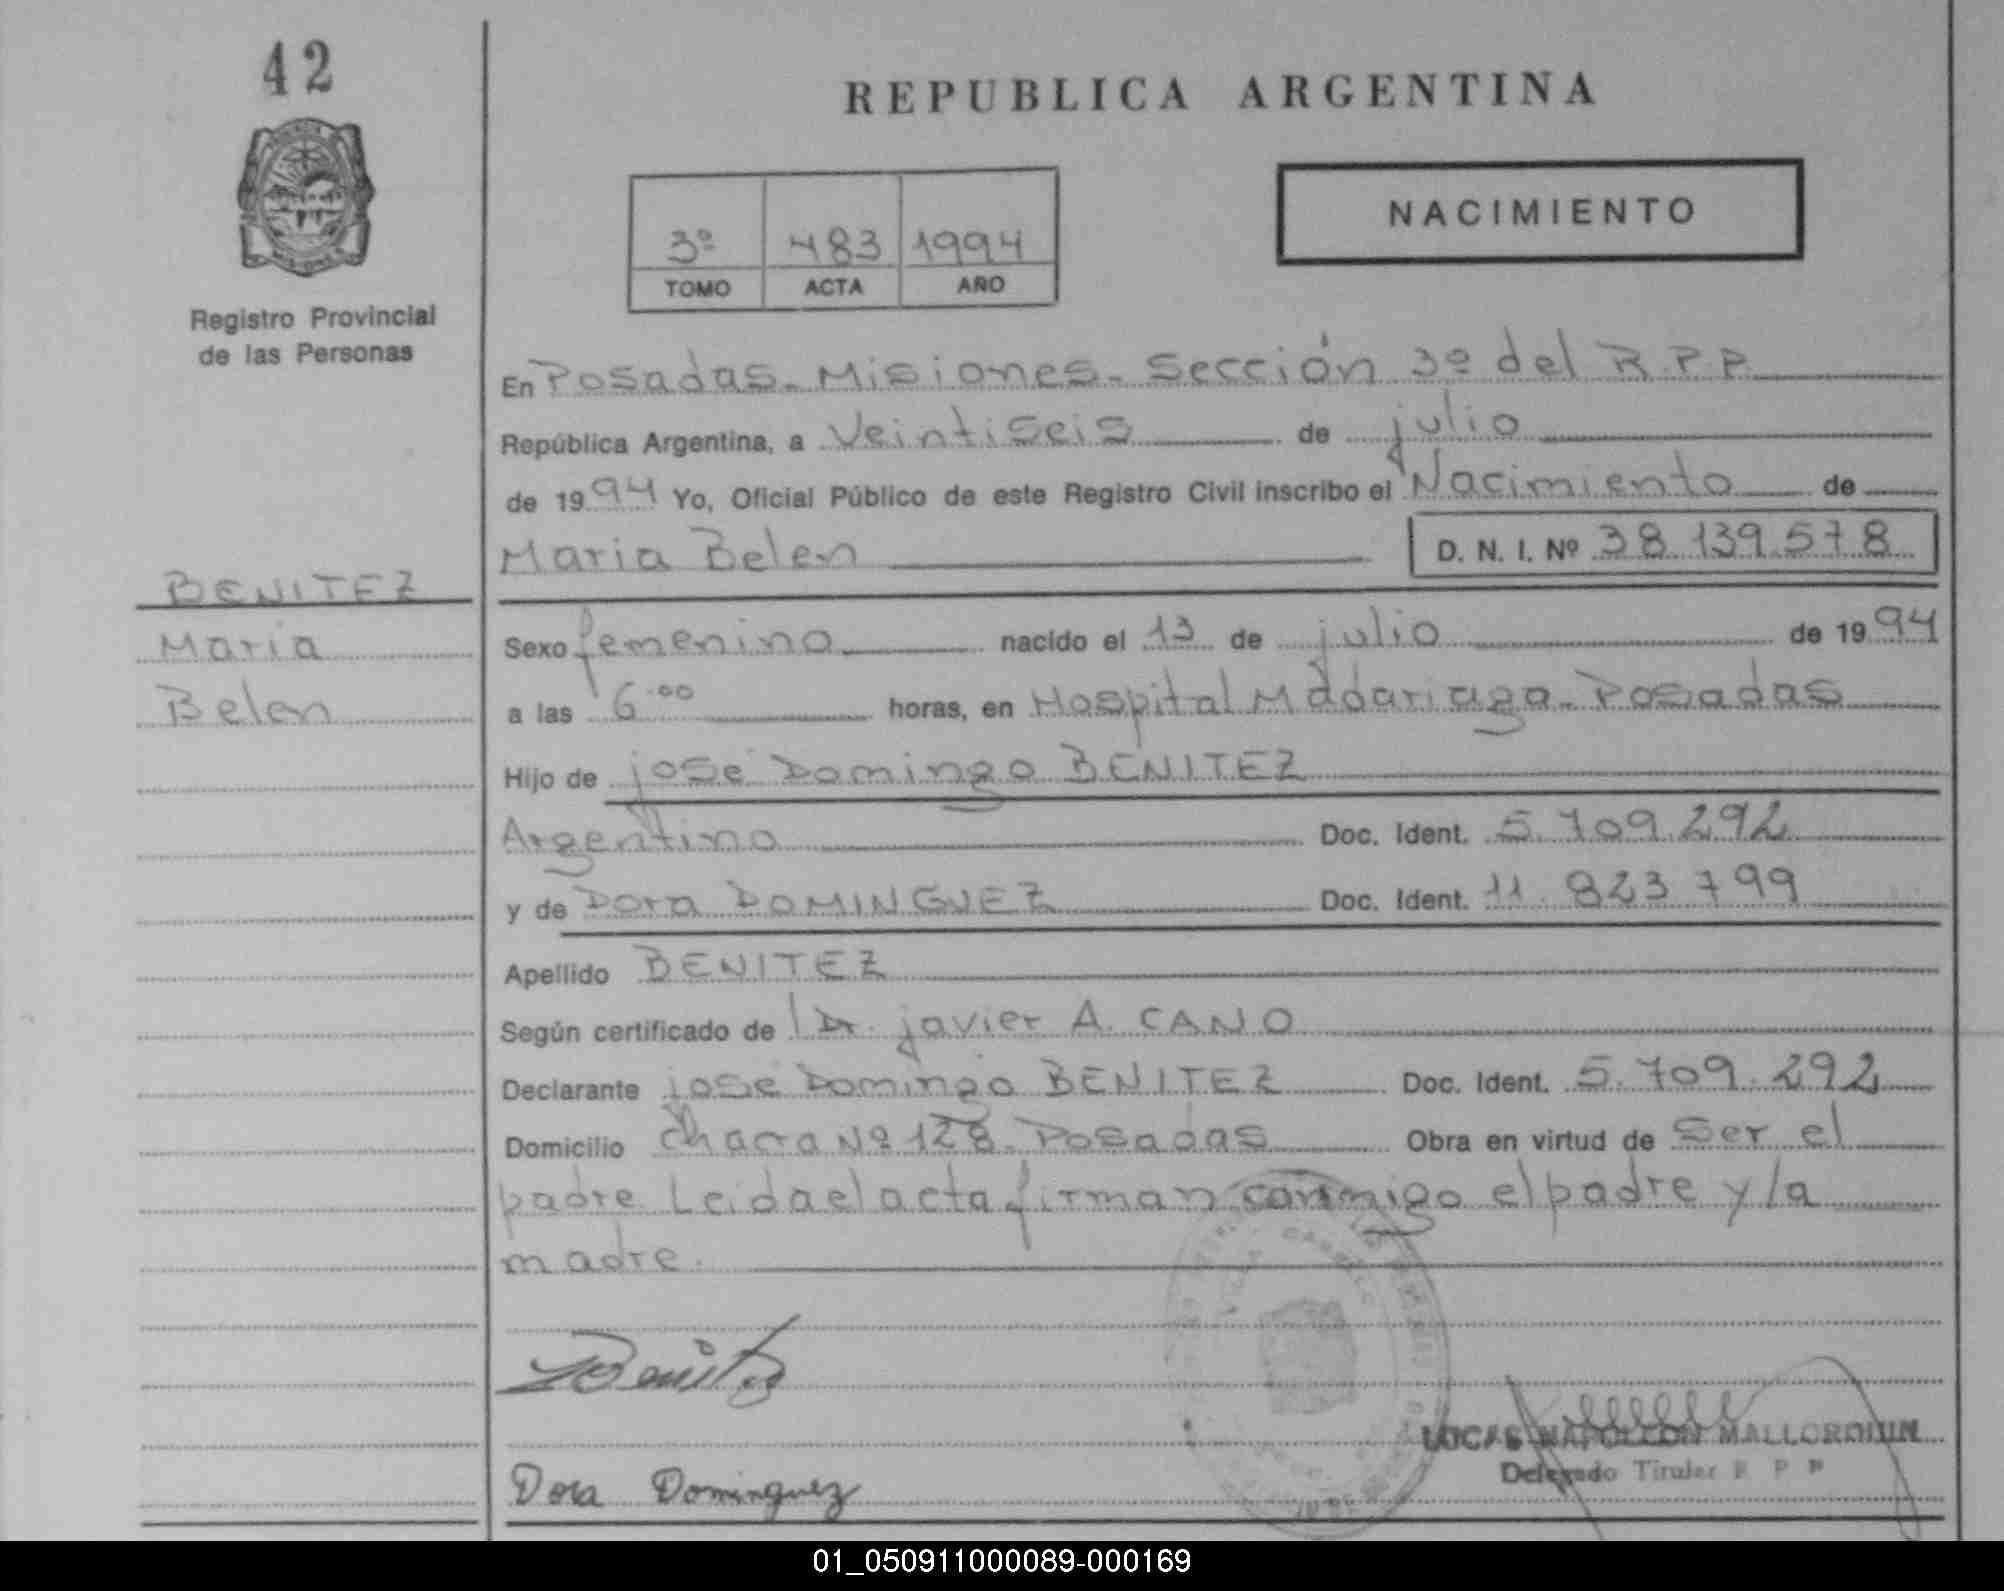 42
REPUBLICA ARGENTINA
NACIMIENTO
3º 483 1994
TOMO ACTA AÑO
Registro Provincial
de las Personas
En Posadas - Misiones - Sección 3º del R.P.P.
República Argentina, a Veintiseis de julio
de 1994 Yo, Oficial Público de este Registro Civil inscribo el Nacimiento de
Maria Belen D. N. I. Nº 38.139.578
BENITEZ
Maria
Belen
Sexo femenino nacido el 13 de julio de 1994
a las 6.00 horas, en Hospital Madariaga - Posadas
Hijo de jose Domingo BENITEZ
Argentino Doc. Ident. 5.709.292
y de Dora DOMINGUEZ Doc. Ident. 11.823.799
Apellido BENITEZ
Según certificado de Dr. javier A. CANO
Declarante jose Domingo BENITEZ Doc. Ident. 5.709.292
Domicilio Chacra Nº 128 - Posadas Obra en virtud de Ser el
padre. Leida el acta firman conmigo el padre y la
madre.
Benitez
LUCAS NAPOLEON MALLORQUIN
Delegado Titular R P P
Dora Dominguez
01_050911000089-000169